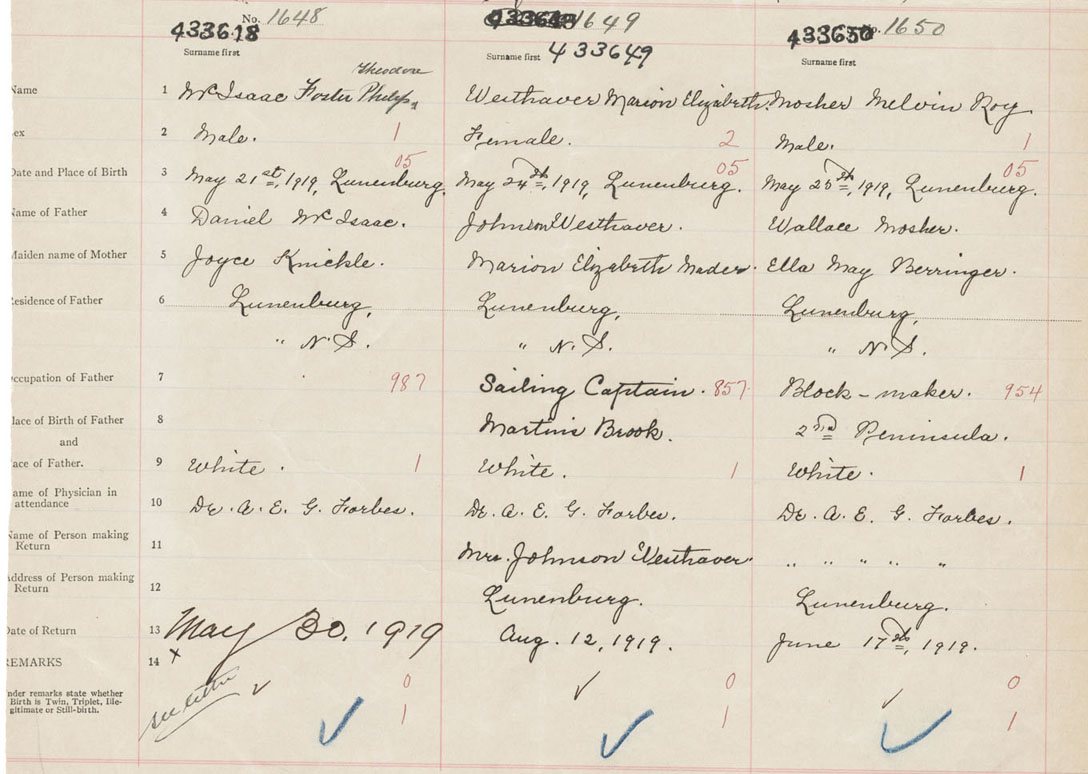 No. 1648 433649 1649 No. 1650
433618 433650
Surname first Surname first 433649 Surname first
Theodore
Name 1 McIsaac Foster Philip, Westhaver Marion Elizabeth. Mosher Melvin Roy
ex 2 Male. 1 Female. 2 Male. 1
05 05 05
Date and Place of Birth 3 May 21st, 1919, Lunenburg. May 24th, 1919, Lunenburg. May 25th, 1919, Lunenburg.
Name of Father 4 Daniel McIsaac. Johnson Westhaver. Wallace Mosher.
Maiden name of Mother 5 Joyce Knickle. Marion Elizabeth Mader. Ella May Berringer.
Residence of Father 6 Lunenburg, Lunenburg, Lunenburg,
" N.S. " N.S. " N.S.
ccupation of Father 7 987 Sailing Captain. 857 Block-maker. 954
lace of Birth of Father 8 Martins Brook. 2nd Peninsula.
and
ace of Father. 9 White. 1 White. 1 White. 1
ame of Physician in
attendance 10 Dr. A. E. G. Forbes. Dr. A. E. G. Forbes. Dr. A. E. G. Forbes.
Name of Person making
Return 11 Mrs. Johnson Westhaver " " " " "
Address of Person making
Return 12 Lunenburg. Lunenburg.
Date of Return 13 May 30, 1919 Aug. 12, 1919. June 17th, 1919.
REMARKS 14 x
nder remarks state whether 0 0 0
Birth is Twin, Triplet, Ille-
gitimate or Still-birth. see letter 1 1 1